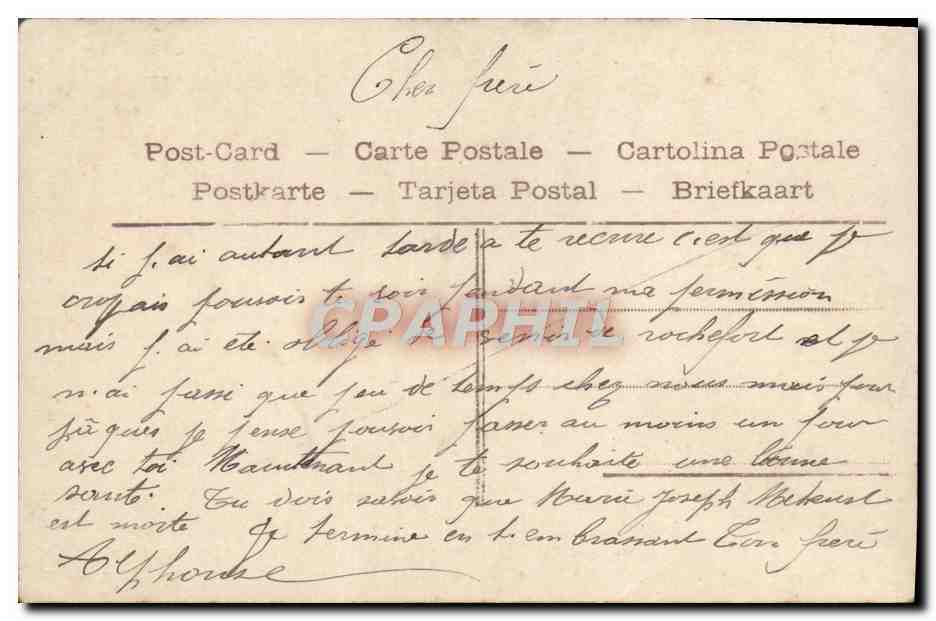 Cher frère
Post-Card — Carte Postale — Cartolina Postale
Postkarte — Tarjeta Postal — Briefkaart
si j.ai autant tarde a te recrire c.est que je
croyais pouvoir te voir pandant ma permission
CPAPHIL
mais j.ai ete obligé de venir de rochefort et je
n.ai passé que peu de temps chez nous mais pour
pâques je pense pouvoir passer au moins un jour
avec toi Maintenant je te souhaite une bonne
sante. Tu dois savoir que Marie Joseph
est morte Je termine en t.embrassant Ton frère
Alphonse